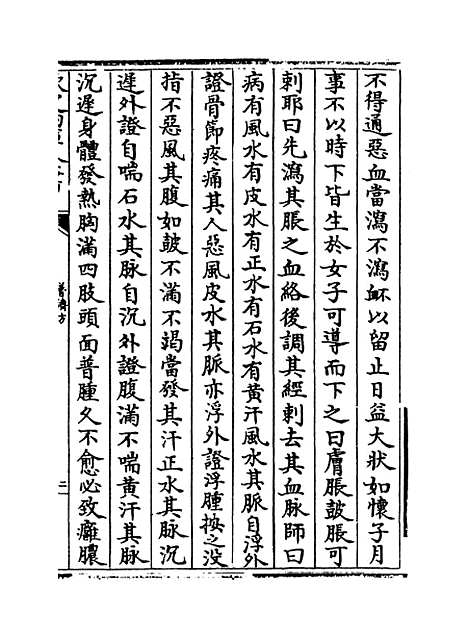 不得通惡血當瀉不瀉衃以留止日益大狀如懷子月
事不以時下皆生於女子可導而下之曰膚脹皷脹可
刺耶曰先瀉其脹之血絡後調其經刺去其血脉師曰
病有風水有皮水有正水有石水有黄汗風水其脈自浮外
證骨節疼痛其人惡風皮水其脈亦浮外證浮腫按之没
指不惡風其腹如皷不滿不渴當發其汗正水其脉沉
遲外證自喘石水其脉自沉外證腹滿不喘黄汗其脉
沉遲身體發熱胸滿四肢頭面普腫久不愈必致癰膿
普濟方
二